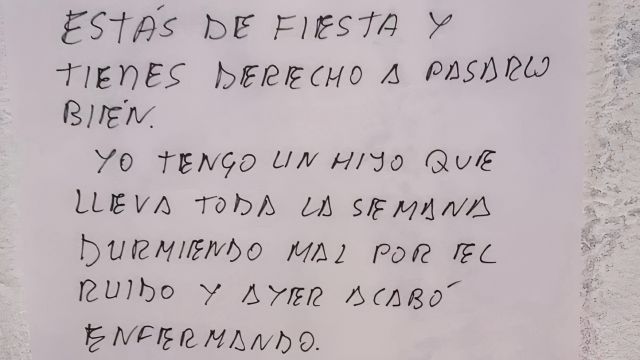 ESTÁS DE FIESTA Y
TIENES DERECHO A PASARLO
BIEN.
YO TENGO UN HIJO QUE
LLEVA TODA LA SEMANA
DURMIENDO MAL POR EL
RUIDO Y AYER ACABÓ
ENFERMANDO.